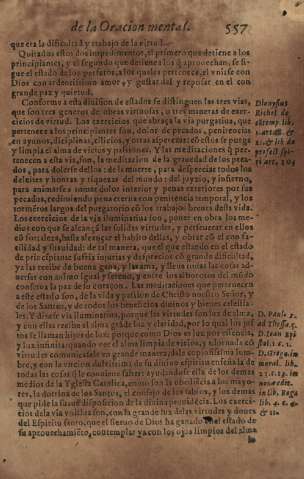 de la Oracion mental. 557
que era la dificultad y trabajo de la virtud.
Quitados estos dos impedimentos, el primero que detiene a los
principiantes, y el segundo que detiene los q̃ aprouechan, se si-
gue el estado de los perfetos, a los quales pertenece, el vnirse con
Dios con ardentissimo amor, y gustar del y reposar en el con
grande paz y quietud.
Conforme a esta diuision de estados se distinguen las tres vias,
que son tres generos de obras virtuosas, o tres maneras de exer-
cicios de virtud. Los exercicios que abraça la via purgatiua, que
pertenece a los principiantes son, dolor de pecados, penitencias,
en ayunos, disciplinas, cilicios, y otras asperezas: esto es se purga
y limpia el alma de vicios y passiones. Y las meditaciones q̃ per-
tenecen a esta via, son, la meditacion de la grauedad de los peca-
dos, para dolerse dellos: de la muerte, para despreciar todos los
deleites y honras y riquezas del mundo: del juyzio, y infierno,
para animarse a tomar dolor interior y penas exteriores por sus
pecados, redimiendo pena eterna con penitencia temporal, y los
tormentos largos del purgatorio con los trabajos breues desta vida.
Los exercicios de la via iluminatiua son, poner en obra los me-
dios con que se alcançã las solidas virtudes, y perseuerar en ellos
cõ fortaleza, hasta alcançar el habito dellas, y obrar cõ el con fa-
cilidad y suauidad: de tal manera, que el que estando en el estado
de principiante sufria injurias y desprecios cõ grande dificultad,
ya las recibe de buena gana, y las ama, y lleua todas las cosas ad-
uersas con animo igual y sereno, y entre los alborotos del mundo
conserua la paz de su coraçon. Las meditaciones que pertenecen
a este estado son, de la vida y passion de Christo nuestro Señor, y
de los Santos, y de todos los beneficios diuinos y bienes celestia-
les. Y dizese via iluminatiua, porque las virtudes son luz de alma,
y con ellas recibe el alma grande luz y claridad, por lo qual los jus-
tos se llaman hijos de luz: porque como Dios es luz por essencia,
y luz infinita; quando vee el alma limpia de vicios, y adornada cõ
virtudes comunicasele en grande manera,
bre, y con la vncion
todas las cosas q̃ le conuiene saber: ayudandose ella de los demas
medios de la Yglesia Catolica, como son la obediencia a los mayo-
res, la dotrina de los Santos, el consejo de los sabios, y los demas
que pide la suaue disposicion de la diuina prouidẽcia. Los exerci-
cios de la via vnitiua son, con la grande luz de las virtudes y dones
del Espiritu santo, que el sieruo de Dios ha ganado en el estado de
su aprouechamiẽto, contemplar ya con los ojos limpios del alma
la
Dionysius
Richel de
lib. 1.
artic. 3. &
D. Paulo 2.
ad Thess. 5.
D. Grego. in
moral. lib.
lib. 4. c. 4.
& 11.